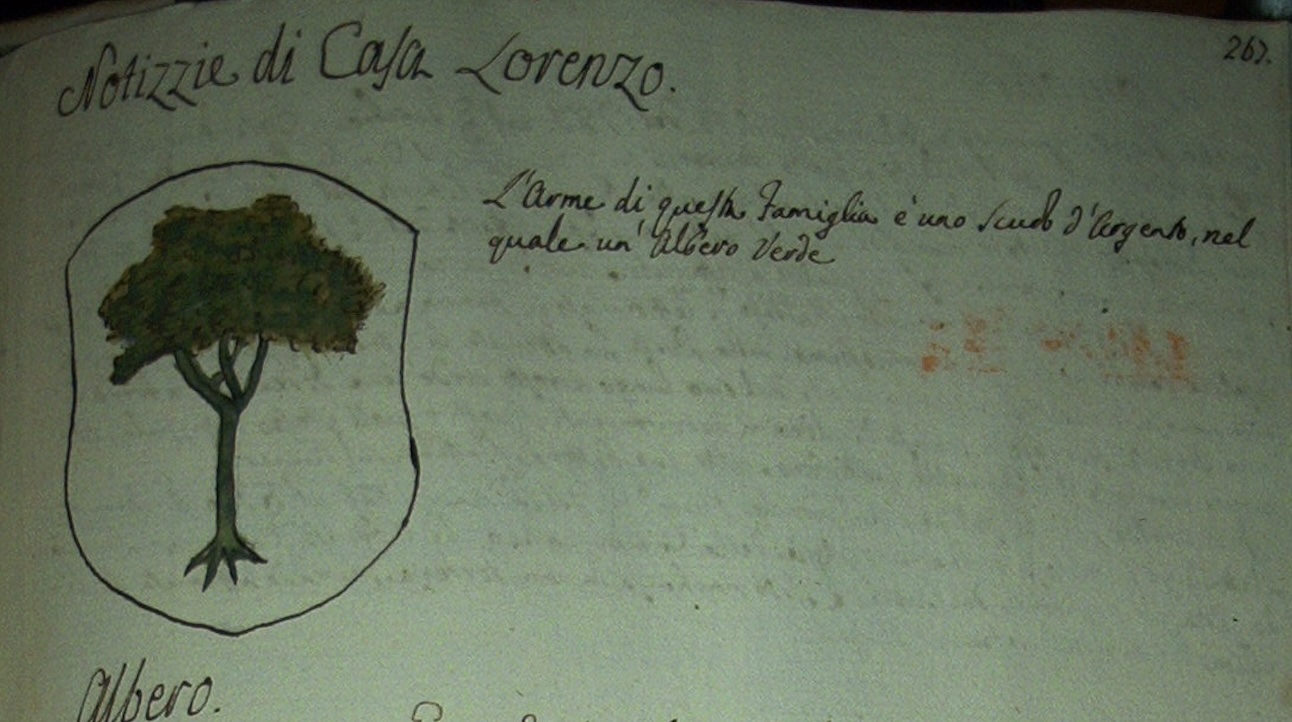 267.
Notizzie di Casa Lorenzo.
L'Arme di questa Famiglia è uno scudo d'Argento, nel
quale un' Albero Verde
Albero.